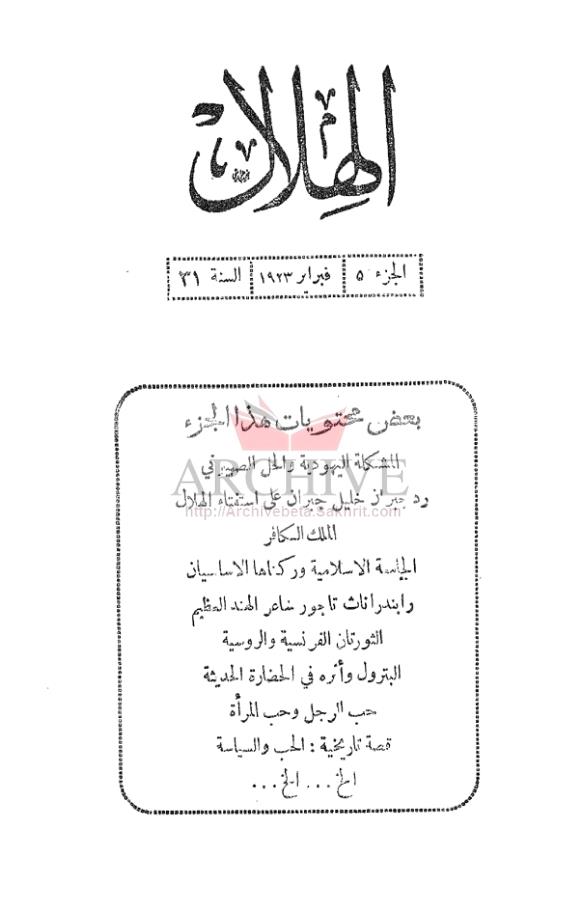 الهلال
الجزء ٥ | فبراير ١٩٢٣ | السنة ٣١
بعض محتويات هذا الجزء
المشكلة اليهودية والحل الصهيوني
ARCHIVE
رد جبران خليل جبران على استفتاء الهلال
http://Archivebeta.Sakhrit.com
الملك الكافر
الجامعة الاسلامية وركناها الاساسيان
رابندرانات تاجور شاعر الهند العظيم
الثورتان الفرنسية والروسية
البترول وأثره في الحضارة الحديثة
حب الرجل وحب المرأة
قصة تاريخية : الحب والسياسة
الخ ... الخ ...